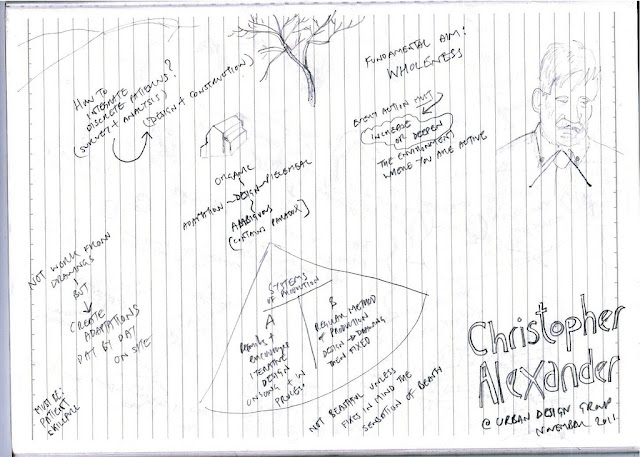 HOW TO
INTEGRATE
DISCRETE PATTERNS?
(SURVEY + ANALYSIS)
(DESIGN + CONSTRUCTION)
FUNDAMENTAL AIM:
WHOLENESS
EVERY ACTION MUST
INCREASE
OR DEEPEN
THE ENVIRONMENT
WHERE YOU ARE ACTIVE
ORGANIC
ADAPTATION - DESIGN - PIECEMEAL
AMBIGUOUS
(CONTAINS PARADOX)
NOT WORK FROM
DRAWINGS
BUT
CREATE
ADAPTATIONS
DAY BY DAY
ON SITE
MUST BE:
PATIENT
SYSTEMS
OF PRODUCTION
A
ITERATIVE
DESIGN
ONGOING + IN
PROCESS
B
REGULAR METHOD
OF PRODUCTION
DESIGN → DRAWING
THEN FIXED
NOT BEAUTIFUL UNLESS
FIXES IN MIND THE
SENSATION OF DEATH
Christopher
Alexander
@ URBAN DESIGN GROUP
NOVEMBER 2011